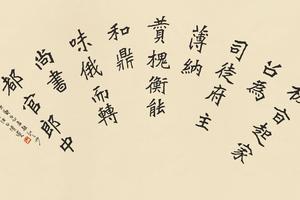 召為百起家
司徒府主
薄納
贊槐衡能
和鼎
味俄而轉
尚書
都官郎中